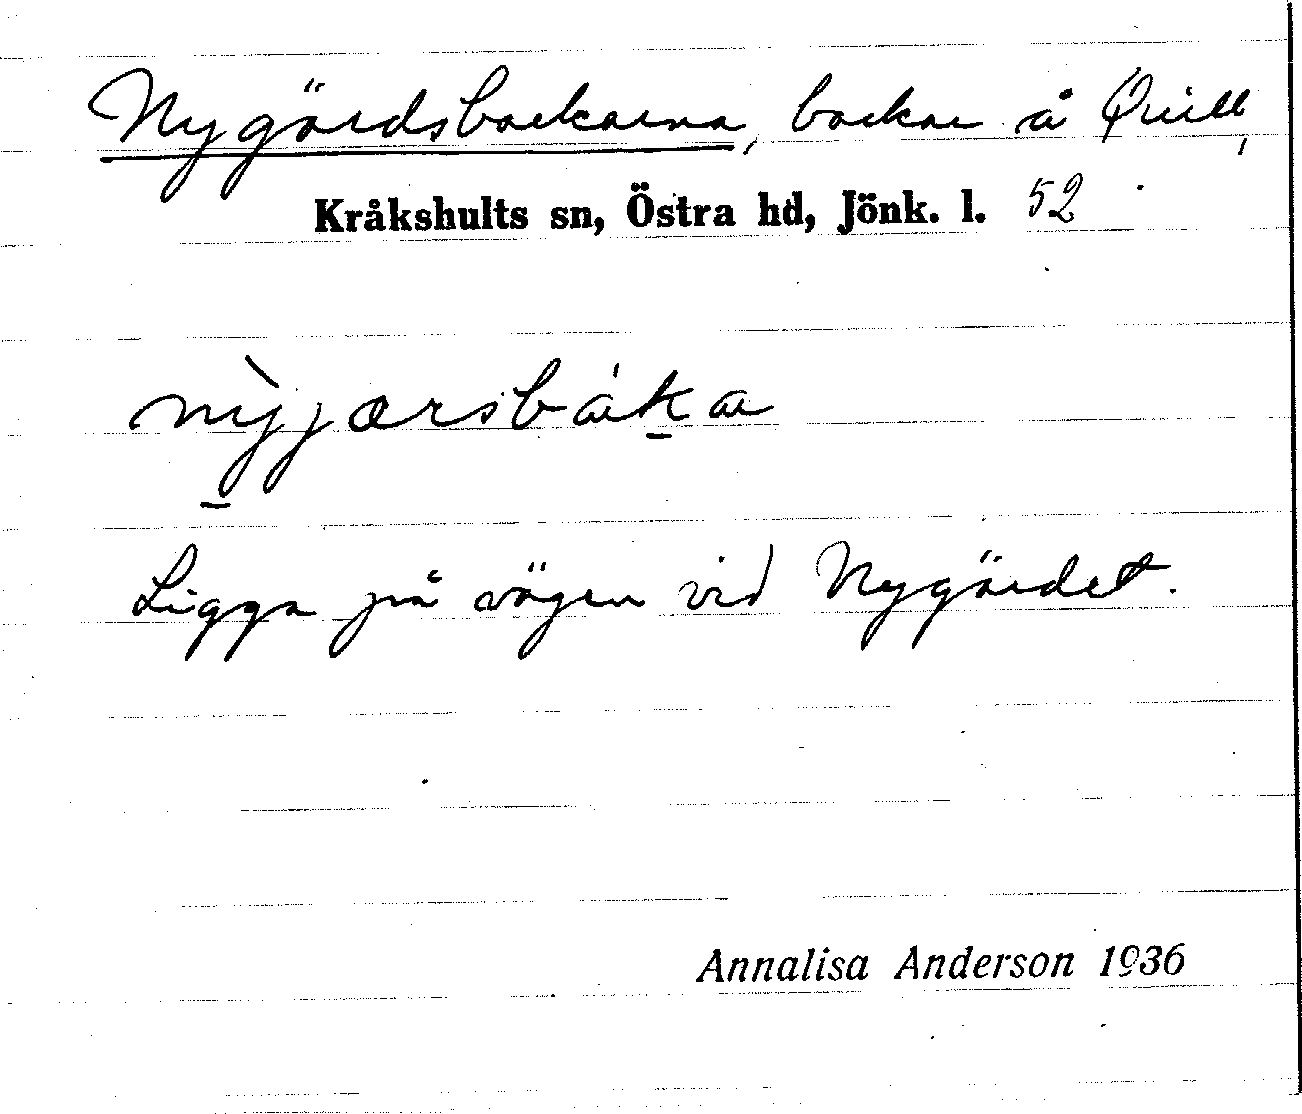 Nygärdsbackarna, backar å Qvill,
Kråkshults sn, Östra hd, Jönk. l. 52
nỳjærsbáka
Ligga på vägen vid Nygärdet.
Annalisa Anderson 1936